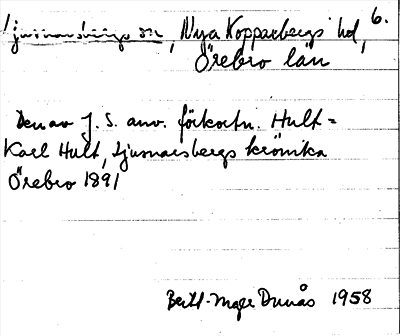 Ljusnarsbergs sn, Nya Kopparbergs hd, 6.
Örebro län
Den av J. S. anv. förkortn. Hult =
Karl Hult, Ljusnarsbergs krönika
Örebro 1891
Bertil 1958